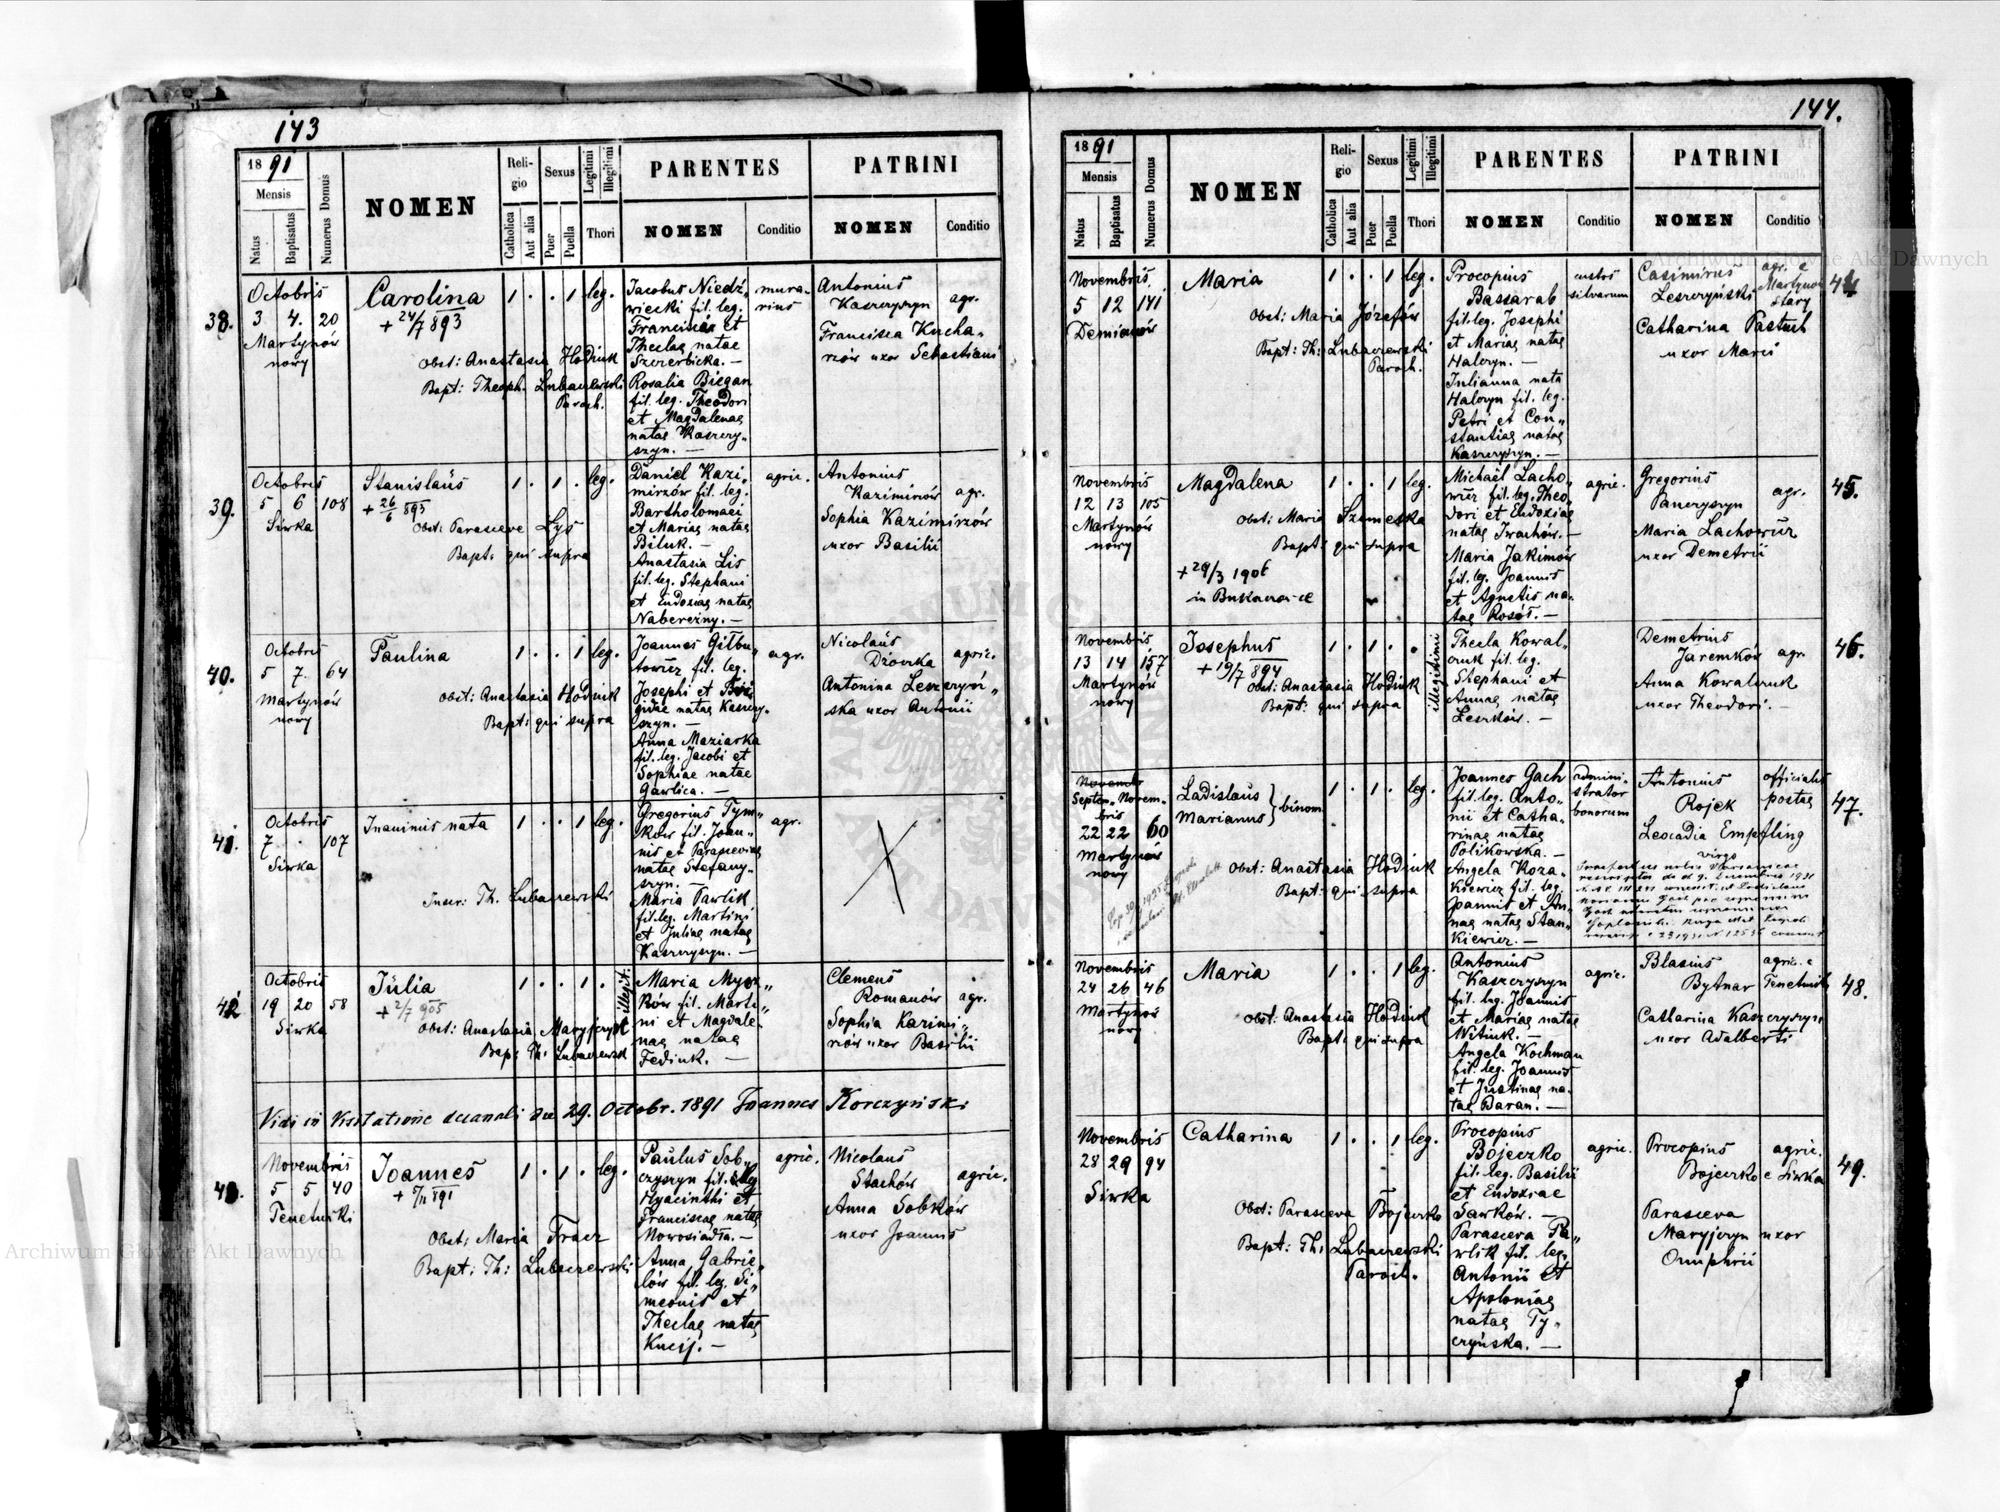 143
18 91
Mensis
Natus
Baptisatus
Numerus Domus
NOMEN
Religio
Catholica
Aut alia
Sexus
Puer
Puella
Legitimi
Illegitimi
Thori
PARENTES
NOMEN
Conditio
PATRINI
NOMEN
Conditio
38.
Octobris
3 4. 20
Martynów
nowy
Carolina
+ 24/7 893
Obst: Anastasia Hodiuk
Bapt: Theoph. Lubaczewski
Paroch.
1 . . 1 leg.
Jacobus Niedź
wiecki fil. leg.
Franciscae et
Theclae natae
Szczerbicka. —
Rosalia Biegan
fil. leg. Theodori
et Magdalenae
natae Kaszczy„
szyn. —
mura-
rius
Antonius
Kaszczyszyn
Francisca Kucha-
rzów uxor Sebastiani
agr.
39.
Octobris
5 6 108
Siwka
Stanislaus
+ 26/6 893
Obst: Parasceve Lys
Bapt: qui supra
1 . 1 . leg.
Daniel Kazi-
mirzów fil. leg.
Bartholomaei
et Mariae natae
Biluk. —
Anastasia Lis
fil. leg. Stephani
et Eudoxiae natae
Naberezny. —
agric.
Antonius
Kazimirów
Sophia Kazimirzów
uxor Basilii
agr.
40.
Octobris
5 7. 64
Martynów
nowy
Paulina
Obst: Anastasia Hodiuk
Bapt: qui supra
1 . . 1 leg.
Joannes Gitbu„
towicz fil. leg.
Josephi et Bri
gidae natae Kaszczy„
szyn. —
Anna Maziarka
fil. leg. Jacobi et
Sophiae natae
Gawlica. —
agr.
Nicolaus
Dżowka
Antonina Leszczyń„
ska uxor Antonii
agric.
41.
Octobris
7 . 107
Siwka
Inanimis nata
Inscr: Th. Lubaczewski
1 . . 1 leg.
Gregorius Tym„
ków fil. Joan„
nis et Parasceviae
natae Stefany„
szyn. —
Maria Pawlik
fil. leg. Martini
et Juliae natae
Kaszczyszyn. —
agr.
42
Octobris
19 20 58
Siwka
Julia
+ 2/7 905
Obst: Anastasia Maryjczyn
Bap: Th. Lubaczewsk
1 . . 1 .
illegit.
Maria Mysz„
ków fil. Marti„
ni et Magdale„
nae natae
Fediuk. —
Clemens
Romanów
Sophia Kazimi„
rzów uxor Basilii
agr.
Vidi in Visitatione decanali die 29. Octobr. 1891 Joannes Korczyński
43.
Novembris
5 5 40
Tenetniki
Joannes
+ 5/11 891
Obst: Maria Tracz
Bapt: Th: Lubaczewski
1 . 1 . leg.
Paulus Sob„
czyszyn fil. leg
Hyacinthi et
Franciscae natae
Nowosiadła. —
Anna Gabrie„
lów fil. leg. Si„
meonis et
Theclae natae
Kncij. —
agric.
Nicolaus
Stachów
Anna Sobków
uxor Joannis
agric.
144.
18 91
Mensis
Natus
Baptisatus
Numerus Domus
NOMEN
Religio
Catholica
Aut alia
Sexus
Puer
Puella
Legitimi
Illegitimi
Thori
PARENTES
NOMEN
Conditio
PATRINI
NOMEN
Conditio
Novembris
5 12 141
Demianów
Maria
Obst: Maria Józefów
Bapt: Th: Lubaczewski
Paroch.
1 . . 1 leg.
Procopius
Bassarab
fil. leg. Josephi
et Mariae natae
Halczyn. —
Julianna nata
Halczyn fil. leg.
Petri et Con„
stantiae natae
Kaszczyszyn. —
custos
silvarum
Casimirus
Leszczyński
Catharina Pastuch
uxor Marci
agr. e
Martynów
stary
44
Novembris
12 13 105
Martynów
nowy
Magdalena
Obst: Maria Szumska
Bapt: qui supra
+ 29/3 1906
in
1 . . 1 leg.
Michael Lacho„
wicz fil. leg. Theo„
dori et Eudoxiae
natae Iwachów. —
Maria Jakimów
fil. leg. Joannis
et Agnetis na-
tae Rosół. —
agric.
Gregorius
Panczyszyn
Maria Lachowicz
uxor Demetrii
agr.
45.
Novembris
13 14 157
Martynów
nowy
Josephus
+ 19/7 894
Obst: Anastasia Hodiuk
Bapt: qui supra
1 . 1 . .
illegitimi
Thecla Kowal„
czuk fil. leg.
Stephani et
Annae natae
Leszków. —
Demetrius
Jaremków
Anna Kowalczuk
uxor Theodori. —
agr.
46.
Novembr
Septem- Novem-
bris
22 22 60
Martynów
nowy
Ladislaus
Marianus } binom.
Obst: Anastasia Hodiuk
Bapt: qui supra
1 . 1 . leg.
Joannes Gach
fil. leg. Anto„
nii et Catha„
rinae natae
Polikowska. —
Angela Koza„
kiewicz fil. leg.
Joannis et An„
nae natae Stan„
kiewicz. —
admini-
strator
bonorum
Antonius
Rojek
Leocadia Empfling
virgo
officialis
postae
47.
Novembris
24 26 46
Martynów
nowy
Maria
Obst: Anastasia Hodiuk
Bapt: qui supra
1 . . 1 leg.
Antonius
Kaszczyszyn
fil. leg. Joannis
et Mariae natae
Witiuk. —
Angela Kochman
fil. leg. Joannis
et Justinae na-
tae Baran. —
agric.
Blasius
Bytnar
Catharina Kaszczyszyn
uxor Adalberti
agric. e
Tenetniki
48.
Novembris
28 29 94
Siwka
Catharina
Obst: Parasceva Bojeczko
Bapt: Th: Lubaczewski
Paroch.
1 . . 1 leg.
Procopius
Bojeczko
fil. leg. Basilii
et Eudoxiae
Sawków. —
Parasceva Pa„
wlik fil. leg.
Antonii et
Apoloniae
natae Ty„
czyńska. —
agric.
Procopius
Bojeczko
Parasceva
Maryjczyn uxor
Onuphrii
agric.
e Siwka
49.
Archiwum Główne Akt Dawnych
Archiwum Główne Akt Dawnych